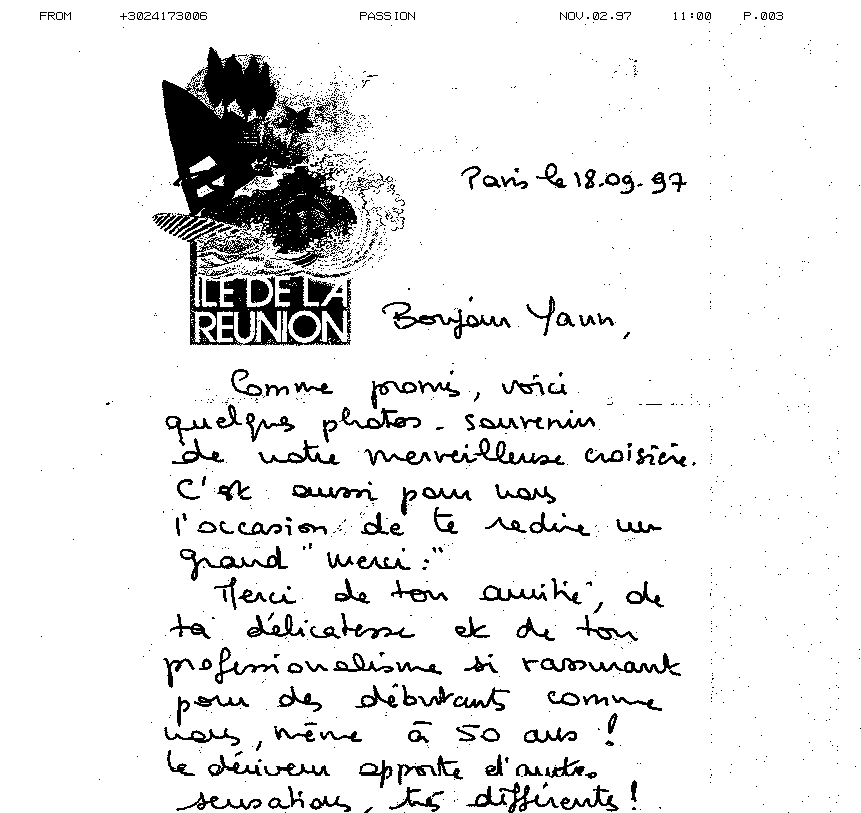 FROM +3024173006 PASSION NOV.02.97 11:00 P.003
Paris le 18.09.97
ILE DE LA
REUNION
Bonjour Yann,
Comme promis, voici
quelques photos-souvenirs
de notre merveilleuse croisière.
C'est aussi pour nous
l'occasion de te redire un
grand "merci."
Merci de ton amitié, de
ta délicatesse et de ton
professionalisme si rassurant
pour des débutants comme
nous, même à 50 ans !
Le dériveur apporte d'autres
sensations, très différentes !